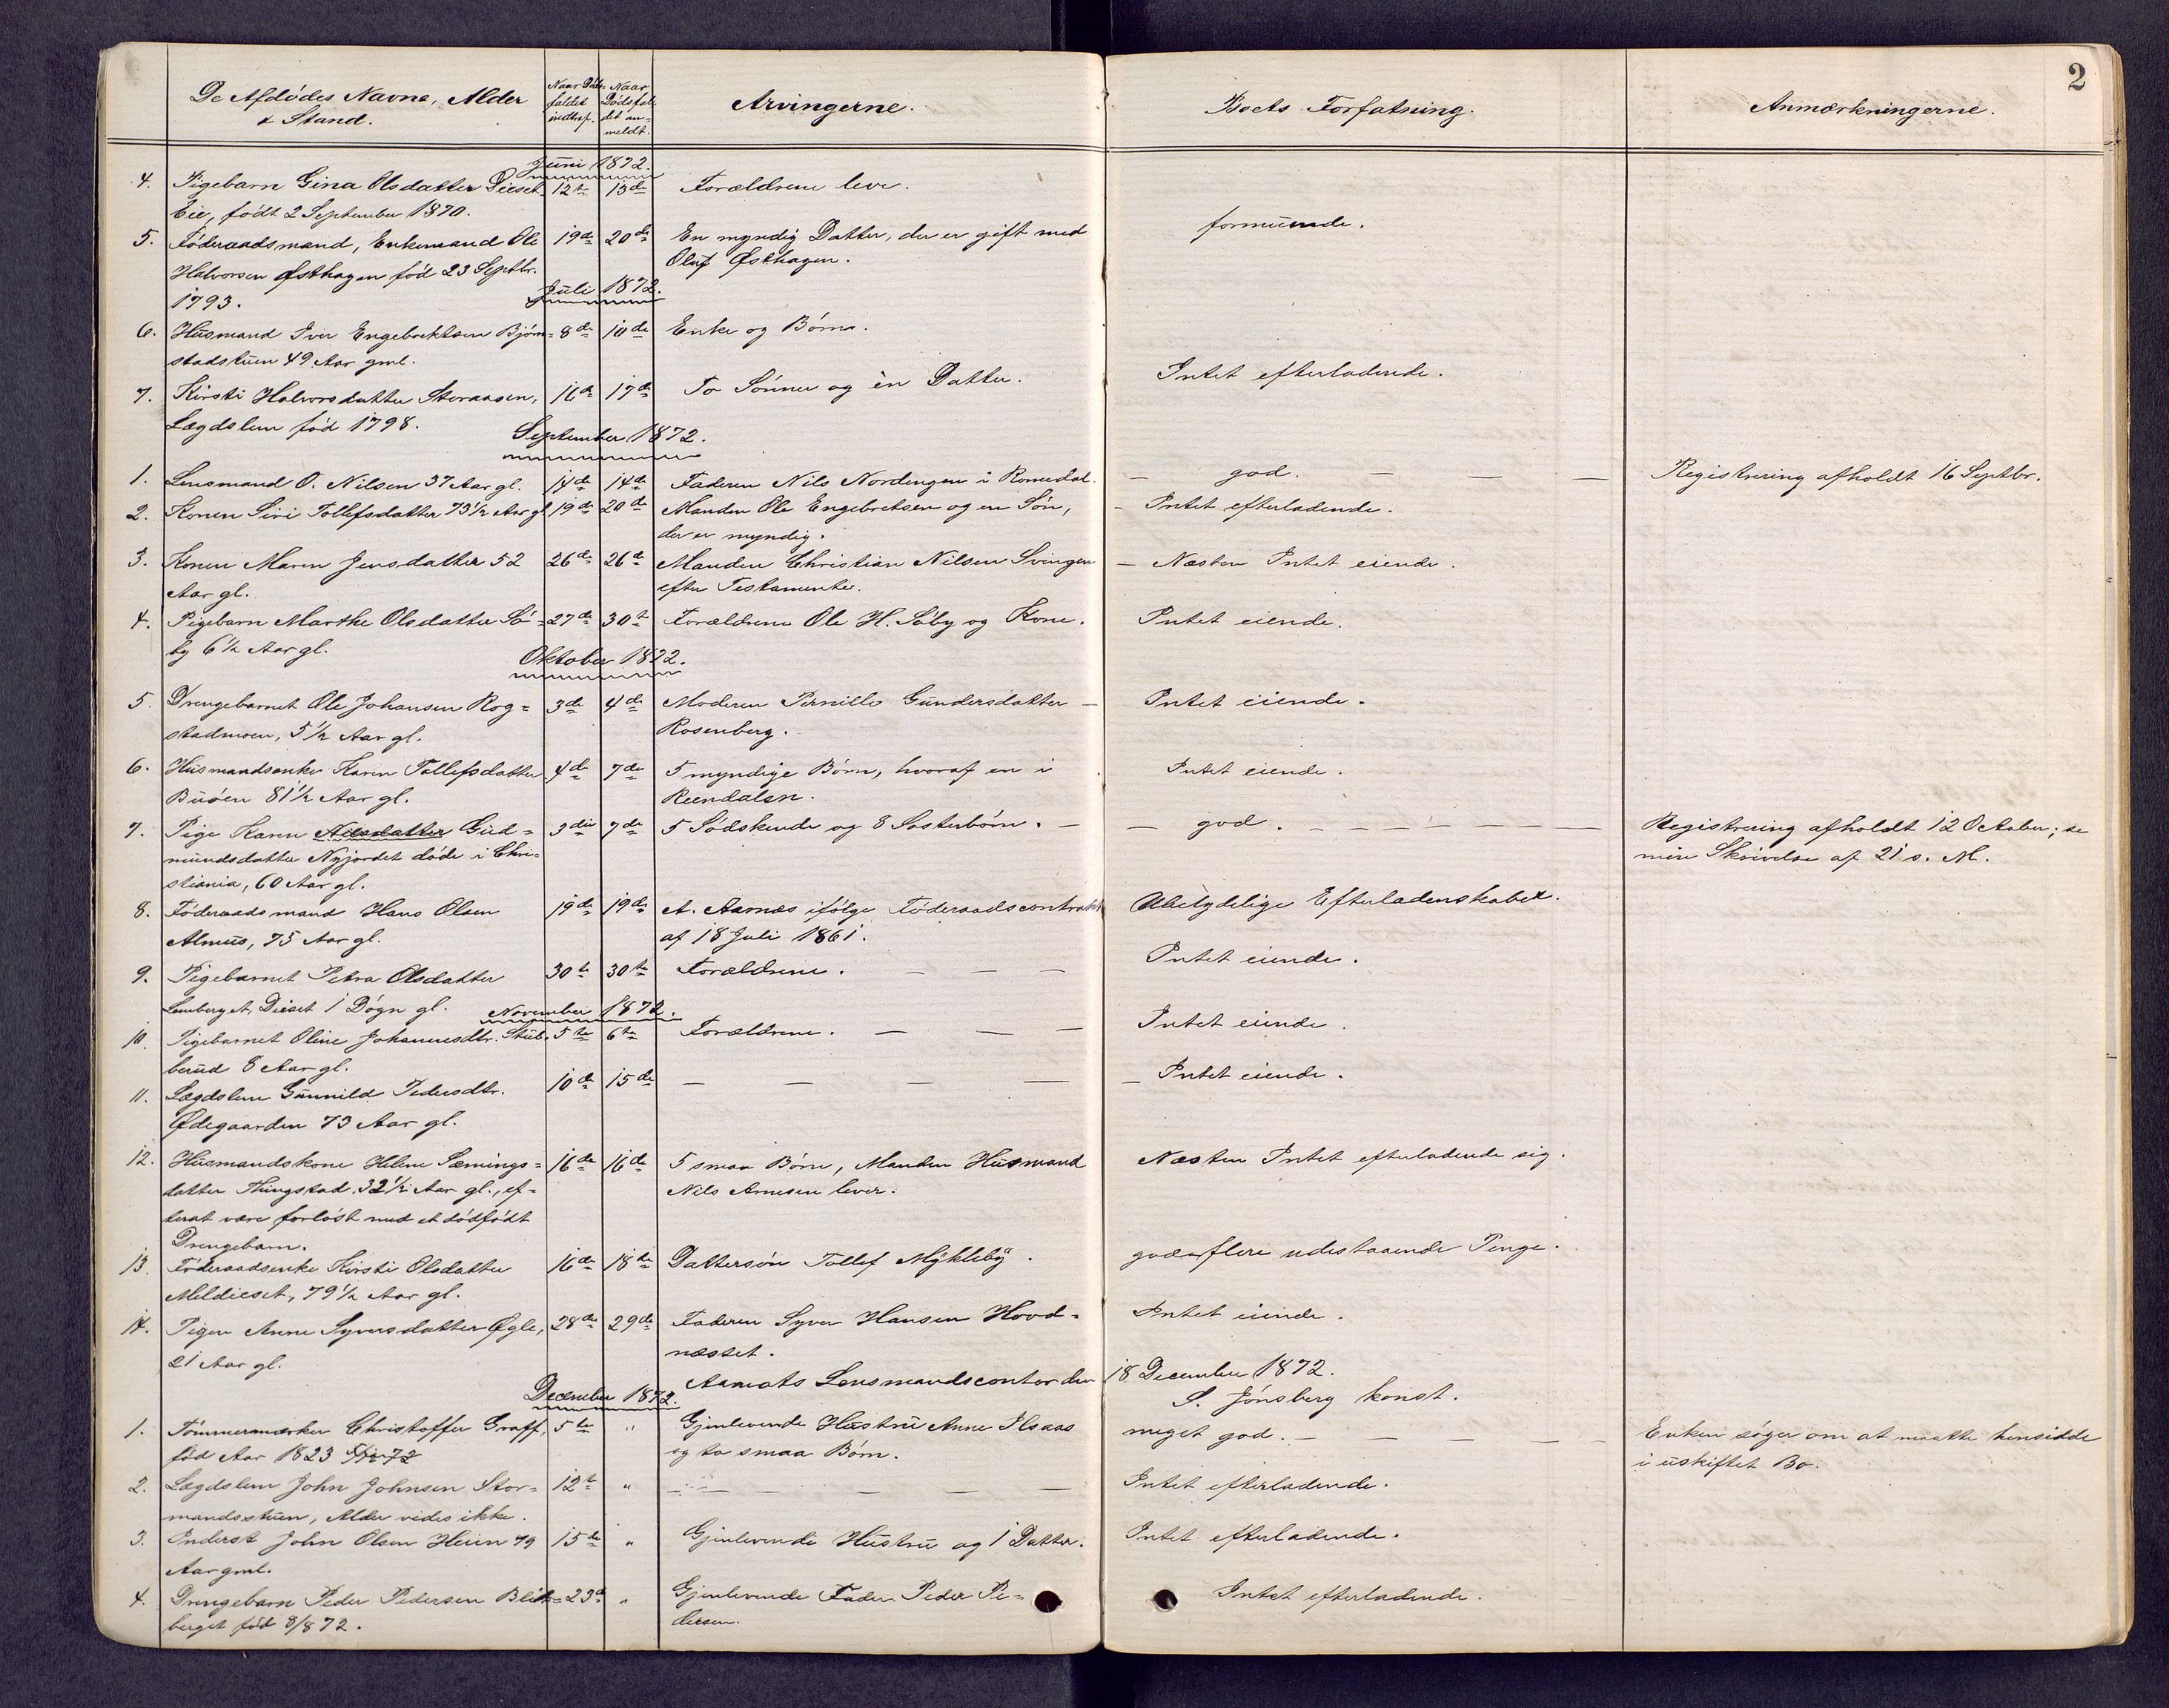 2
De Afdödes Navne, Alder & Stand.
Naar Döds-faldet indtrf.
Naar Dödsfal-det an-meldt.
Arvingerne.
Boets Forfatning.
Anmærkningerne.
Juni 1872.
4. Pigebarn Gina Olsdatter Dieset 12te 13de Forældrene leve.
Eie, födt 2 September 1870.
5. Föderaadsmand, Enkemand Ole 19de 20de En myndig Datter, der er gift med formuende.
Halvorsen Østhagen föd 23 Septbr. Oluf Østhagen.
1793.
Juli 1872.
6. Husmand Iver Engebrektsen Björn= 8de 10de Enke og Börn.
stadstuen 49 Aar gml. Intet efterladende.
7. Kirsti Halvorsdatter Storaasen, 16de 17de To Sönner og èn Datter.
Lægdslem föd 1798.
September 1872.
1. Lensmand O. Nilsen 37 Aar gl. 14de 14de Faderen Nils Nordengen i Romedal. — god. — — — Registrering afholdt 16 Septbr.
2. Konen Siri Tollefsdatter 73½ Aar gl 19de 20de Manden Ole Engebretsen og en Sön, - Intet efterladende.
der er myndig.
3. Konen Maren Jensdatter 52 26de 26de Manden Christian Nilsen Svingen — Næsten Intet eiende.
Aar gl. efter Testamente.
4. Pigebarn Marthe Olsdatter Sö= 27de 30te Forældrene Ole H. Söby og Kone. Intet eiende.
by 6½ Aar gl.
Oktober 1872.
5. Drengebarnet Ole Johansen Rog= 3de 4de Moderen Pernille Gundersdatter — Intet eiende.
stadmoen, 5½ Aar gl. Rosenberg.
6. Husmandsenke Karen Tollefsdatter 4de 7de 5 myndige Börn, hvoraf en i Intet eiende.
Buöen 81½ Aar gl. Reendalen.
7. Pige Karen Nilsdatter Gud= 3die 7de 5 Södskende og 8 Sösterbörn. — — god. — — — — — Registrering afholdt 12 October; se
mundsdatter Nyjordet döde i Chri= min Skrivelse af 21 s. M.
stiania, 60 Aar gl.
8. Föderaadsmand Hans Olsen 19de 19de A. Aarnæs ifölge Föderaadscontrakt Ubetydelige Efterladenskaber.
Almus, 75 Aar gl. af 18 Juli 1861.
9. Pigebarnet Petra Olsdatter 30te 30te Forældrene. — — — Intet eiende.
Lemberget, Dieset 1 Dögn gl.
November 1872.
10. Pigebarnet Oline Johannesdtr. Stub= 5te 6te Forældrene. — — — Intet eiende.
berud 8 Aar gl.
11. Lægdslem Gunnild Pedersdtr. 10de 15de — — — — — Intet eiende.
Ødegaarden 73 Aar gl.
12. Husmandskone Helene Sæmings= 16de 16de 5 smaa Börn, Manden Husmand Næsten Intet efterladende sig.
datter Thingstad, 32½ Aar gl., ef= Nils Arnesen lever.
terat være forlöst med et dödfödt
Drengebarn.
13. Föderaadsenke Kirsti Olsdatter 16de 18de Dattersön Tollef Mykleby. god, flere udestaaende Penge.
Meldieset, 79½ Aar gl.
14. Pigen Anne Syversdatter Øgle, 28de 29de Faderen Syver Hansen Hovd= Intet eiende.
21 Aar gl. næsset.
Aamots Lensmandscontor den 18 December 1872.
S. Jönsberg konst.
December 1872.
1. Tömmermærker Christoffer Graff, 5te " Gjenlevende Hustru Anne Ilsaas meget god. — — — — Enken söger om at maatte hensidde
föd Aar 1823 og to smaa Börn. i uskiftet Bo.
2. Lægdslem John Johnsen Stor= 12te " — — — — — Intet efterladende.
mandsstuen, Alder vides ikke.
3. Inderst John Olsen Heien 79 15de " Gjenlevende Hustru og 1 Datter. Intet efterladende.
Aar gml.
4. Drengebarn Peder Pedersen Blik= 23de " Gjenlevende Fader Peder Pe= Intet efterladende.
berget föd 8/8 72. dersen.